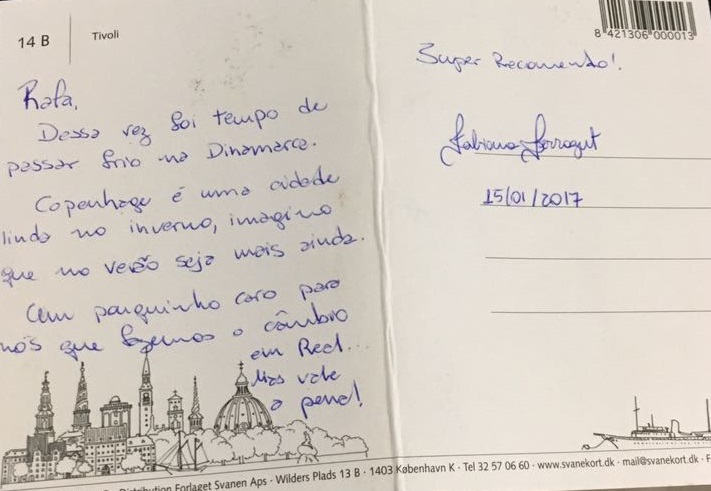 14 B
Tivoli
Rafa,
Dessa vez foi tempo de
passar frio na Dinamarca.
Copenhage é uma cidade
linda no inverno, imagino
que no verão seja mais ainda.
Um pouquinho caro para
nós que fazemos o câmbio
em Real...
Mas vale
a pena!
8 421306 000013
Super Recomendo!
Fabiana Ferragut
15/01/2017
Distribution Forlaget Svanen Aps · Wilders Plads 13 B · 1403 København K · Tel 32 57 06 60 · www.svanekort.dk · mail@svanekort.dk · F